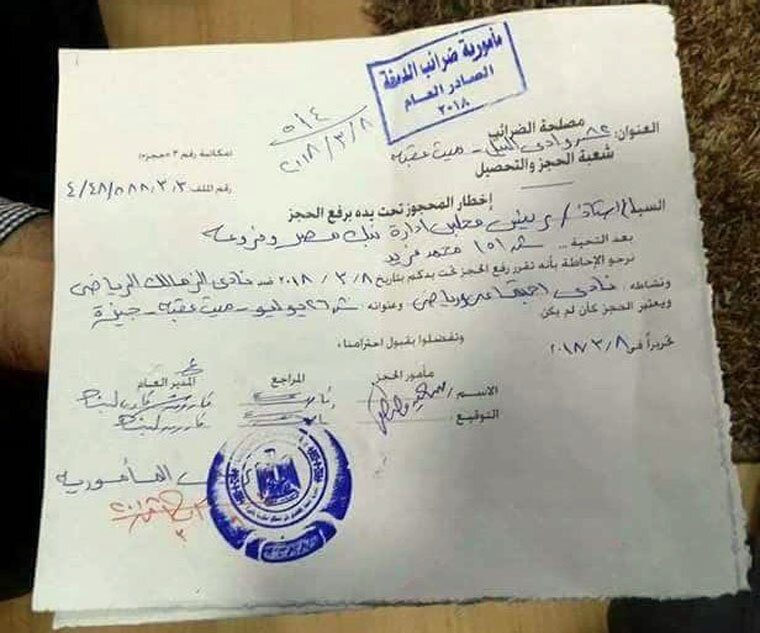 مأمورية ضرائب الدقة
الصادر العام
٢٠١٨
٥١٤
٢٠١٨/٣/٨
مصلحة الضرائب
العنوان: ٨٥ ش وادى النيل - ميت عقبه
شعبة الحجز والتحصيل
مكاتبة رقم ٣ «حجز»
رقم الملف ٤/٤٨/٥٨٨/٣/٣
إخطار المحجوز تحت يده برفع الحجز
السيد/ استاذ/ رئيس مجلس ادارة بنك مصر وفروعه
ش ١٥١ محمد فريد
بعد التحية ..
نرجو الإحاطة بأنه تقرر رفع الحجز تحت يدكم بتاريخ ٢٠١٨/٣/٨ ضد نادى الزمالك الرياضى
ونشاطه: نادى اجتماعى ورياضى وعنوانه ش ٢٦ يوليو - ميت عقبه - جيزة
ويعتبر الحجز كأن لم يكن
وتفضلوا بقبول احترامنا،
تحريراً فى ٢٠١٨/٣/٨
مأمور الحجز
المراجع
المدير العام
الاسم
التوقيع
المأمورية